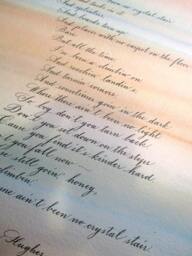 no crystal stair
tacks in it
And splinters
And boards torn up
And places with no carpet on the floor
Bare
But all the time
I'se been a-climbin' on
And reachin' landin's
And turnin' corners
And sometimes goin' in the dark
Where there ain't been no light
So boy, don't you turn back
Don't you set down on the steps
'Cause you find it's kinder hard
you fall now
still goin', honey,
climbin'
ain't been no crystal stair
Hughes